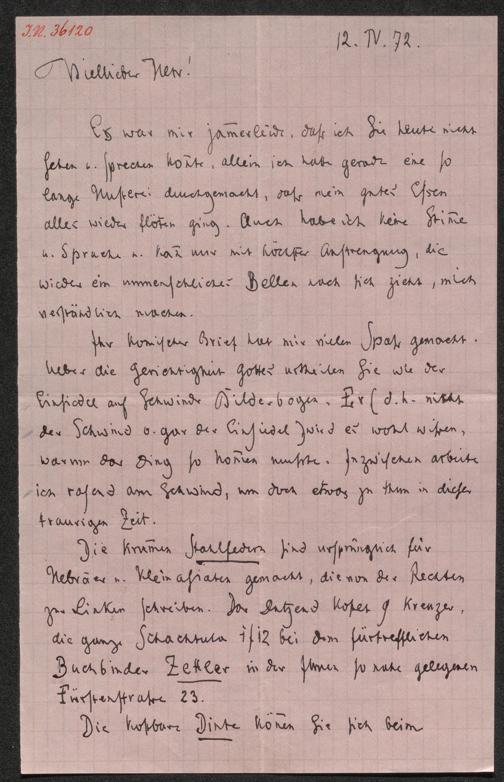 I.N. 36120
12. IV. 72.
Viellieber Herr!
Es war mir jam̄erleide, daß ich Sie heute nicht
sehen u. sprechen kon̄te, allein ich habe gerade eine so
lange Husterei durchgemacht, daß mein gutes Essen
alles wieder flöten ging. Auch habe ich keine Stim̄e
u. Sprache u. kan̄ nur mit höchster Anstrengung, die
wieder ein unmenschliches Bellen nach sich zieht, mich
verständlich machen.
Ihr komischer Brief hat mir vielen Spaß gemacht.
Ueber die Gerichtigkeit Gottes urtheilen Sie wie der
Einsiedel auf Schwinds Bilderbogen. Er (d.h. nicht
der Schwind o. gar der Einsiedel) wird es wohl wissen,
warum das Ding so kom̄en mußte. Inzwischen arbeite
ich rasend am Schwind, um doch etwas zu thun in dieser
traurigen Zeit.
Die krum̄en Stahlfedern sind ursprünglich für
Hebräer u. Kleinasiaten gemacht, die von der Rechten
zur Linken schreiben. Das Dutzend kostet 9 Kreuzer,
die ganze Schachtula 1f12 bei dem fürtrefflichen
Buchbinder Zettler in der Ihnen so nahe gelegenen
Fürstenstraße 23.
Die kostbare Dinte kön̄en Sie sich beim